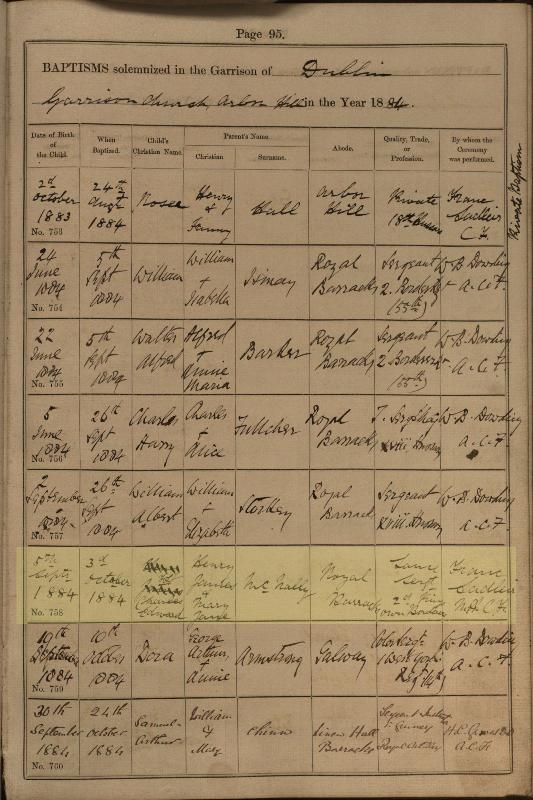 Page 95.
BAPTISMS solemnized in the Garrison of Dublin
Garrison Church, Arbor Hill in the Year 1884.
Date of Birth of the Child.
When Baptized.
Child's Christian Name.
Parent's Name.
Christian
Surname.
Abode.
Quality, Trade, or Profession.
By whom the Ceremony was performed.
2nd October 1883
No. 753
24th Augt 1884
Henry & Fanny
Hall
Arbor Hill
Private
C.F.
Private Baptism
24 June 1884
No. 754
5th Sept 1884
William
William + Isabella
Royal Barracks
Sergeant 2. (55th)
W. B. Dowling A.C.F.
22 June 1884
No. 755
5th Sept 1884
Walter Alfred
Alfred + Annie Maria
Barker
Royal Barracks
Sergeant 2. (55th)
W. B. Dowling A.C.F.
5 June 1884
No. 756
26th Sept 1884
Charles Harry
Charles + Alice
Fulcher
Royal Barracks
W. B. Dowling A.C.F.
2 September 1884
No. 757
26th Sept 1884
William Albert
William + Elizabeth
Royal Barracks
Sergeant XVIII Hussars
W. B. Dowling A.C.F.
5th Sept 1884
No. 758
3rd October 1884
Charles Edward
Henry James & Mary Jane
McNally
Royal Barracks
Lance Sergt
C.F.
19th September 1884
No. 759
10th October 1884
Dora
George Arthur, Annie
Armstrong
Galway
W. B. Dowling A.C.F.
30th September 1884
No. 760
24th October 1884
Samuel Arthur
William & Mary
Chinn
Barracks
Royal Artillery
A.C.F.